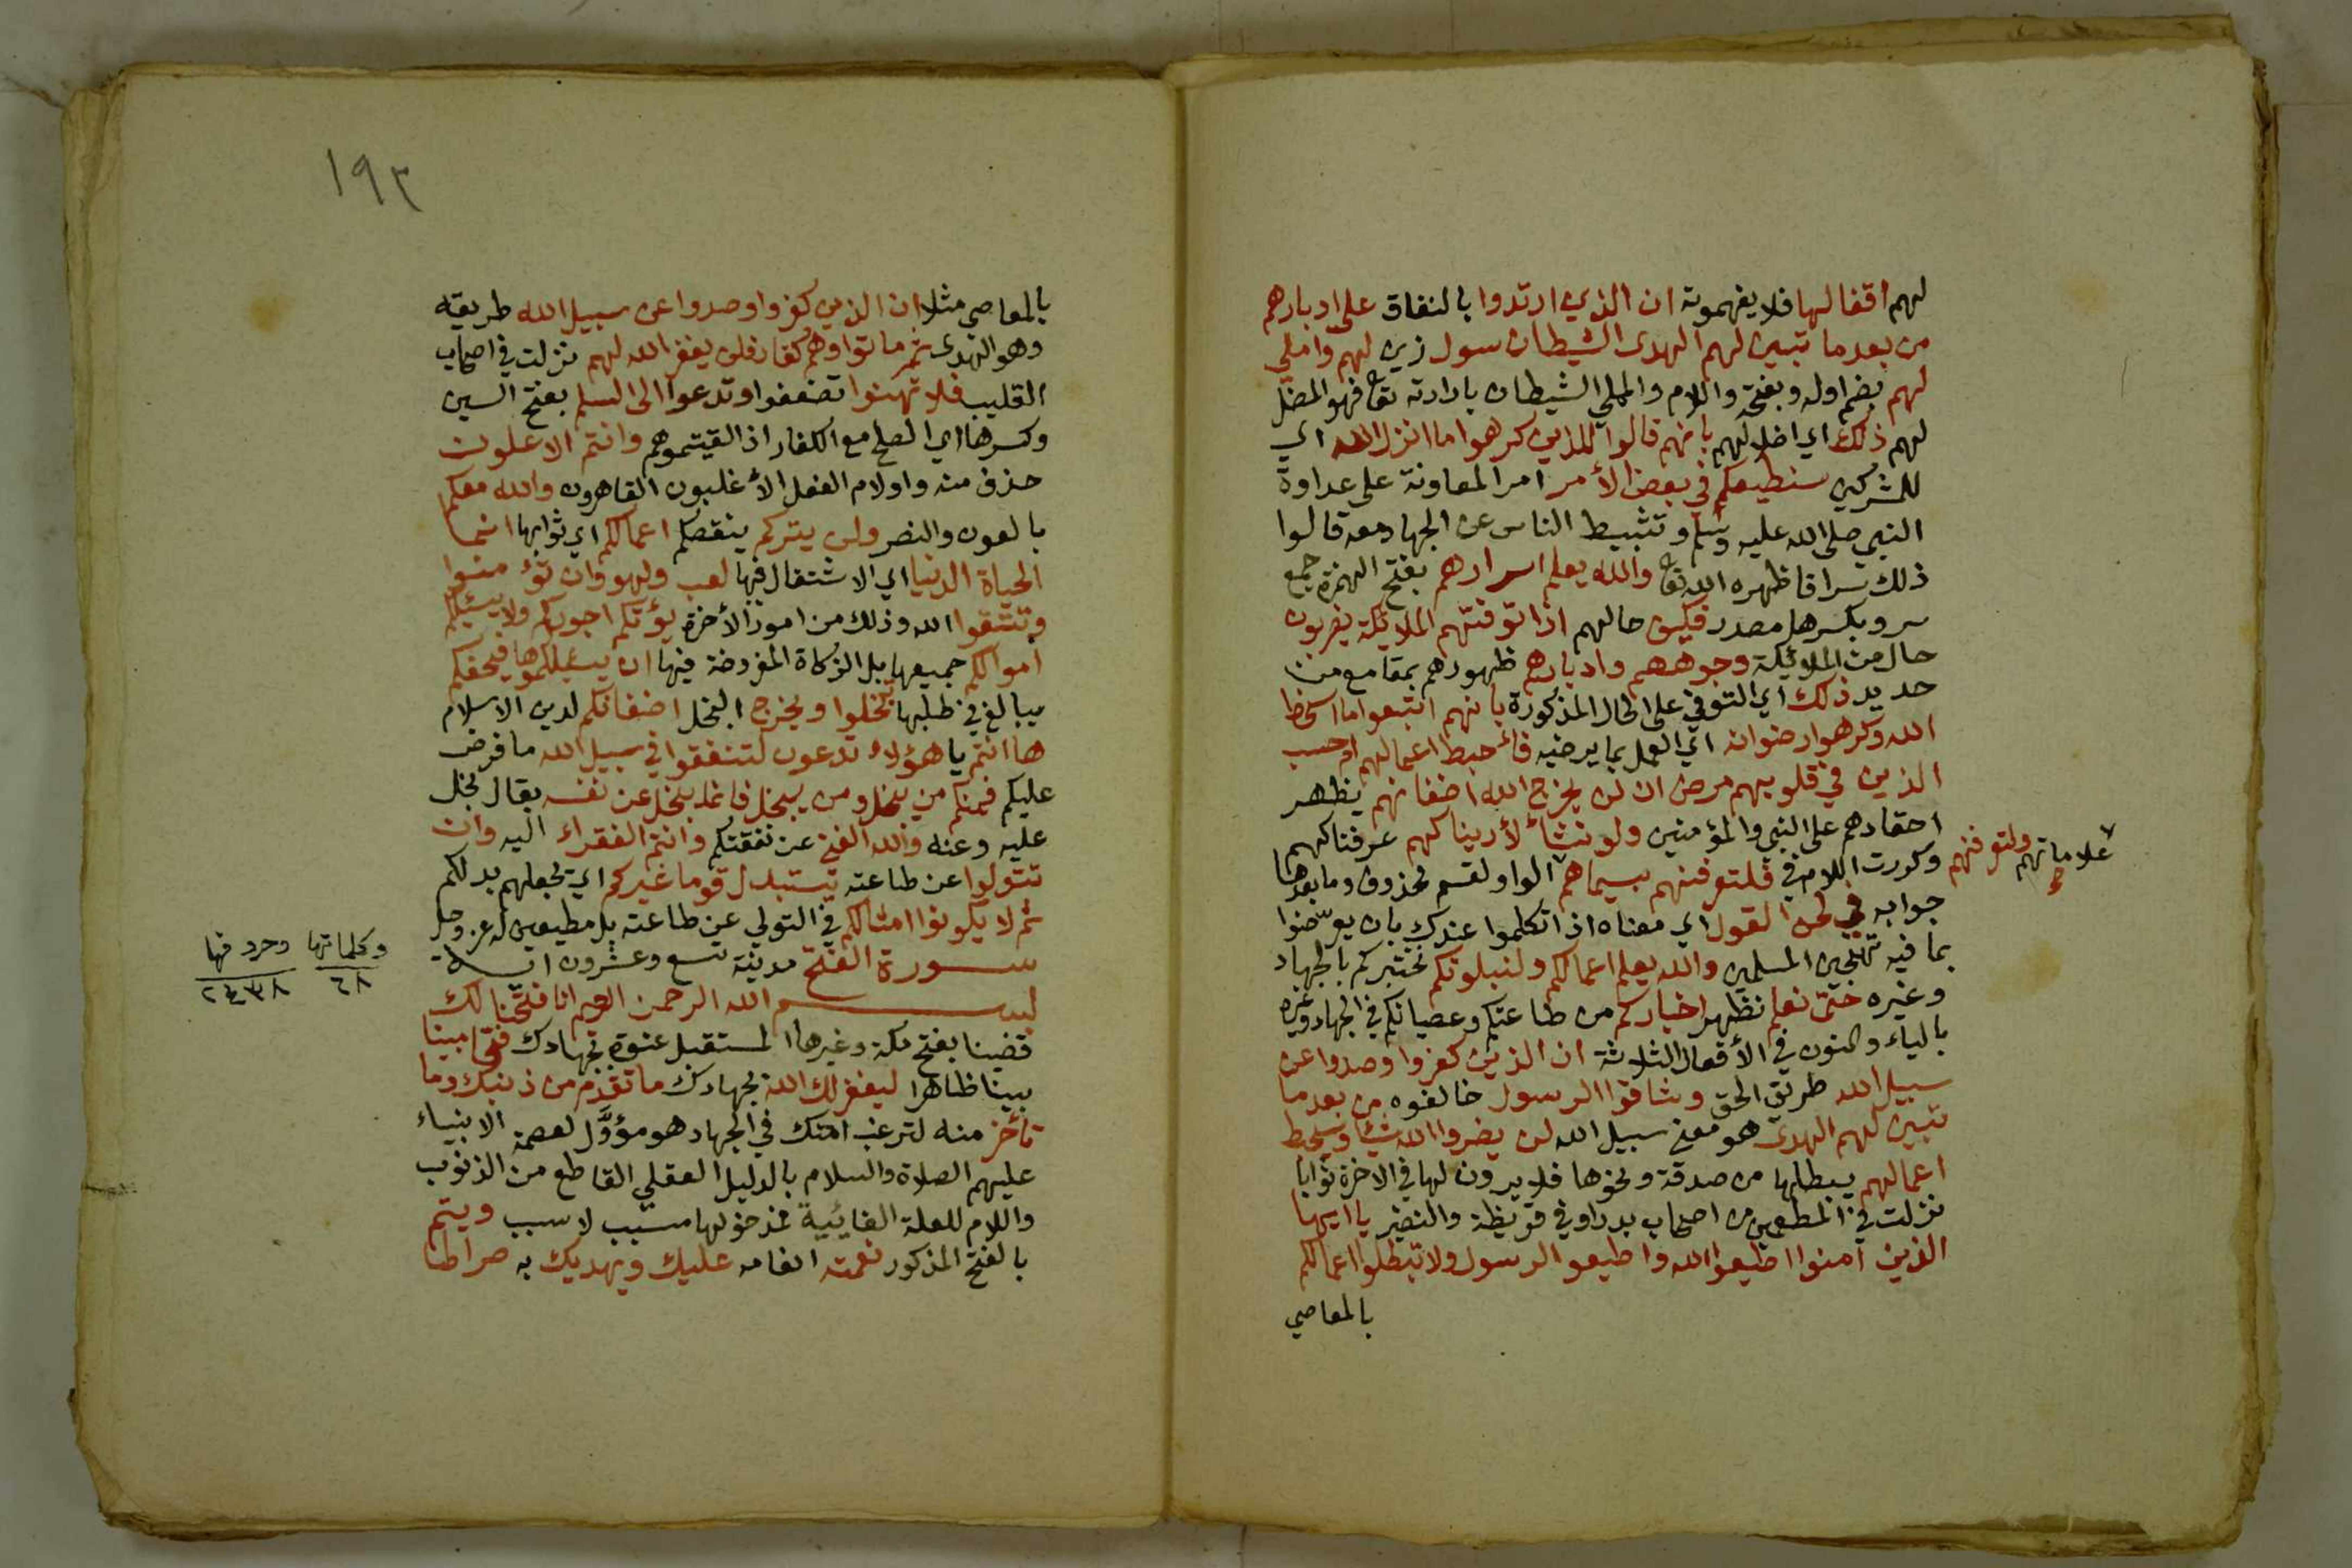 لهم اقفالها فلا يفهمونه ان الذين ارتدوا بالنفاق على ادبارهم
من بعد ما تبين لهم الهدى الشيطان سول زين لهم واملى
لهم بضم اوله وبفتحه واللام والمملي الشيطان بارادته تعا فهو المضل
لهم ذلك اي اضلالهم بانهم قالوا للذين كرهوا ما انزل الله اي
للمشركين سنطيعكم في بعض الأمر امر المعاونة على عداوة
النبي صلى الله عليه وسلم وتثبيط الناس عن الجهاد معه قالوا
ذلك سرا فاظهره الله تعا والله يعلم اسرارهم بفتح الهمزة جمع
سر وبكسرها مصدر فكيف حالهم اذا توفتهم الملائكة يضربون
حال من الملائكة وجوههم وادبارهم ظهورهم بمقامع من
حديد ذلك اي التوفي على الحال المذكورة بانهم اتبعوا ما اسخط
الله وكرهوا رضوانه اي العمل بما يرضيه فأحبط اعمالهم ام حسب
الذين في قلوبهم مرض ان لن يخرج الله اضغانهم يظهر
احقادهم على النبي والمؤمنين ولو نشاء لأريناكهم عرفناكهم
وكررت اللام في فلتعرفنهم بسيماهم الواو لقسم محذوف وما بعدها
علاماتهم ولتعرفنهم
صح
جوابه في لحن القول اي معناه اذا تكلموا عندك بان يعرضوا
بما فيه تهجين المسلمين والله يعلم اعمالكم ولنبلونكم نختبركم بالجهاد
وغيره حتى نعلم نظهر اخباركم من طاعتكم وعصيانكم في الجهاد وغيره
بالياء والنون في الأفعال الثلاثة ان الذين كفروا وصدوا عن
سبيل الله طريق الحق وشاقوا الرسول خالفوه من بعد ما
تبين لهم الهدى هو معنى سبيل الله لن يضروا الله شيئا وسيحبط
اعمالهم يبطلها من صدقة ونحوها فلا يرون لها في الاخرة ثوابا
نزلت في المطعمين من اصحاب بدر او في قريظة والنضير يا ايها
الذين امنوا اطيعوا الله واطيعو الرسول ولا تبطلوا اعمالكم
بالمعاصي
١٩٣
بالمعاصي مثلا ان الذين كفروا وصدوا عن سبيل الله طريقه
وهو الهدى ثم ماتوا وهم كفار فلن يغفر الله لهم نزلت في اصحاب
القليب فلا تهنوا تضعفوا وتدعوا الى السلم بفتح السين
وكسرها اي الصلح مع الكفار اذا لقيتموهم وانتم الاعلون
حذف منه واو لام الفعل الأغلبون القاهرون والله معكم
بالعون والنصر ولن يتركم ينقصكم اعمالكم اي ثوابها انما
الحياة الدنيا اي الاشتغال فيها لعب ولهو وان تؤمنوا
وتتقوا الله وذلك من امور الأخرة يؤتكم اجوركم ولا يسئلكم
اموالكم جميعها بل الزكاة المفروضة فيها ان يسئلكموها فيحفكم
يبالغ في طلبها تبخلوا ويخرج البخل اضغانكم لدين الاسلام
ها انتم يا هؤلاء تدعون لتنفقوا في سبيل الله ما فرض
عليكم فمنكم من يبخل ومن يبخل فانما يبخل عن نفسه يقال بخل
عليه وعنه والله الغني عن نفقتكم وانتم الفقراء اليه وان
تتولوا عن طاعته يستبدل قوما غيركم اي يجعلهم بدلكم
ثم لا يكونوا امثالكم في التولي عن طاعته بل مطيعين له عز وجل
سورة الفتح مدينة تسع وعشرون اية
وكلماتها وحروفها
٦٨ ٢٤٣٨
بسم الله الرحمن الرحيم انا فتحنا لك
قضينا بفتح مكة وغيرها المستقبل عنوة بجهادك فتحا مبينا
بينا ظاهرا ليغفر لك الله بجهادك ما تقدم من ذنبك وما
تأخر منه لترغب امتك في الجهاد هو مؤوَّل لعصمة الانبياء
عليهم الصلاة والسلام بالدليل العقلي القاطع من الذنوب
واللام للعلة الغائية فمدخولها مسبب لا سبب ويتم
بالفتح المذكور نعمته انعامه عليك ويهديك به صراطا